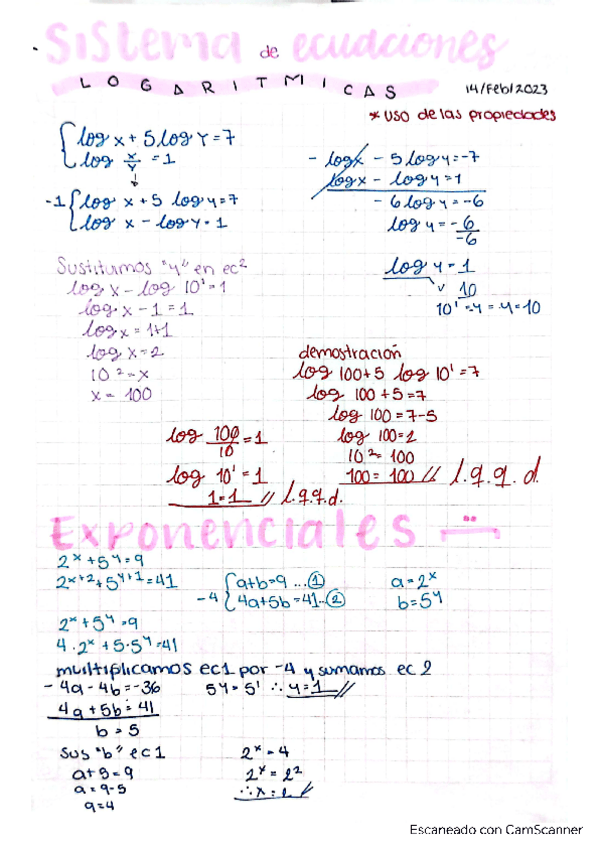 Sistema de ecuaciones
LOGARITMICAS
14/Feb/2023
* USO de las propiedades
log x + 5 log Y = 7
log x/y = 1
-1 { log x + 5 log y = 7
log x - log y = 1
- log x - 5 log y = -7
log x - log y = 1
- 6 log y = -6
log y = -6/-6
log y = 1
10
10¹ = y = y = 10
Sustituimos "y" en ec²
log x - log 10¹ = 1
log x - 1 = 1
log x = 1+1
log x = 2
10² = x
x = 100
demostración
log 100 + 5 log 10¹ = 7
log 100 + 5 = 7
log 100 = 7-5
log 100 = 2
10² = 100
100 = 100 // l.q.q.d.
log 100/10 = 1
log 10¹ = 1
1 = 1 // l.q.q.d.
Exponenciales
2ˣ + 5ʸ = 9
2ˣ⁺² + 5ʸ⁺¹ = 41
-4 { a+b=9 ... ①
4a+5b=41 .. ②
a = 2ˣ
b = 5ʸ
2ˣ + 5ʸ = 9
4 · 2ˣ + 5 · 5ʸ = 41
multiplicamos ec1 por -4 y sumamos ec 2
- 4a - 4b = -36
4a + 5b = 41
b = 5
5ʸ = 5¹ ∴ y = 1 //
Sus "b" ec1
a+5=9
a = 9-5
a=4
2ˣ = 4
2ˣ = 2²
∴ x = 2 //
Escaneado con CamScanner